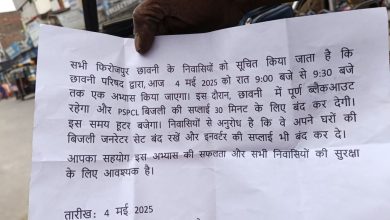 सभी फिरोजपुर छावनी के निवासियों को सूचित किया जाता है कि
छावनी परिषद द्वारा, आज 4 मई 2025 को रात 9:00 बजे से 9:30 बजे
तक एक अभ्यास किया जाएगा। इस दौरान, छावनी में पूर्ण ब्लैकआउट
रहेगा और PSPCL बिजली की सप्लाई 30 मिनट के लिए बंद कर देगी।
इस समय हूटर बजेगा। निवासियों से अनुरोध है कि वे अपने घरों की
बिजली जनरेटर सेट बंद रखें और इनवर्टर की सप्लाई भी बंद कर दे।
आपका सहयोग इस अभ्यास की सफलता और सभी निवासियों की सुरक्षा
के लिए आवश्यक है।
तारीख: 4 मई 2025